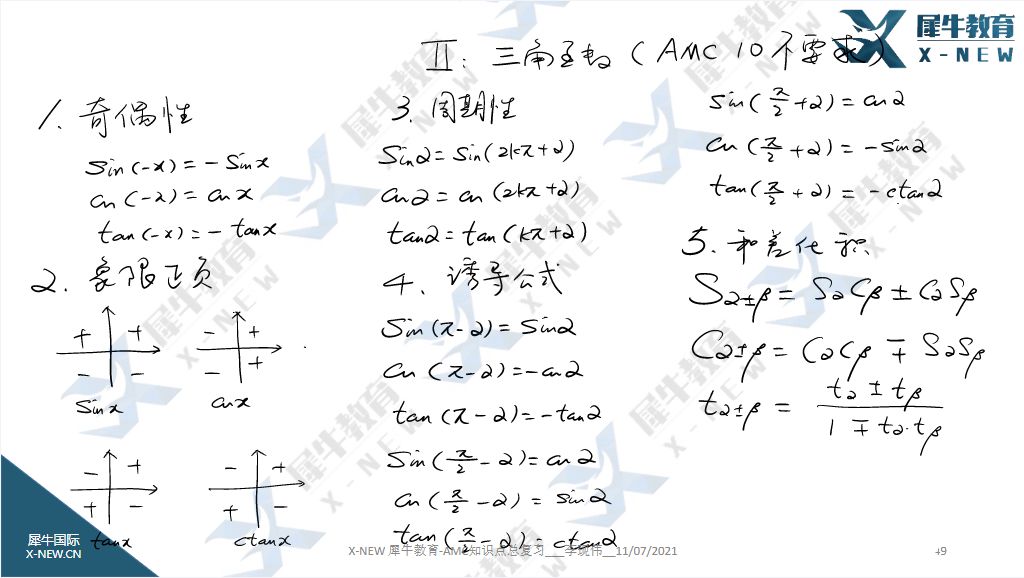 犀牛教育
X-NEW
II: 三角函数 (AMC 10 不要求)
1. 奇偶性
sin(-x) = -sinx
cos(-x) = cosx
tan(-x) = -tanx
2. 象限正负
+ +
- -
sinx
- +
- +
cosx
- +
+ -
tanx
- +
+ -
ctanx
3. 周期性
sinα = sin(2kπ+α)
cosα = cos(2kπ+α)
tanα = tan(kπ+α)
4. 诱导公式
sin(π-α) = sinα
cos(π-α) = -cosα
tan(π-α) = -tanα
sin(π/2-α) = cosα
cos(π/2-α) = sinα
tan(π/2-α) = ctanα
sin(π/2+α) = cosα
cos(π/2+α) = -sinα
tan(π/2+α) = -ctanα
5. 和差化积
Sα±β = SαCβ ± CαSβ
Cα±β = CαCβ ∓ SαSβ
tα±β = (tα ± tβ)/(1 ∓ tα·tβ)
犀牛国际
X-NEW.CN
X-NEW 犀牛教育-AMC知识点总复习 11/07/2021
49